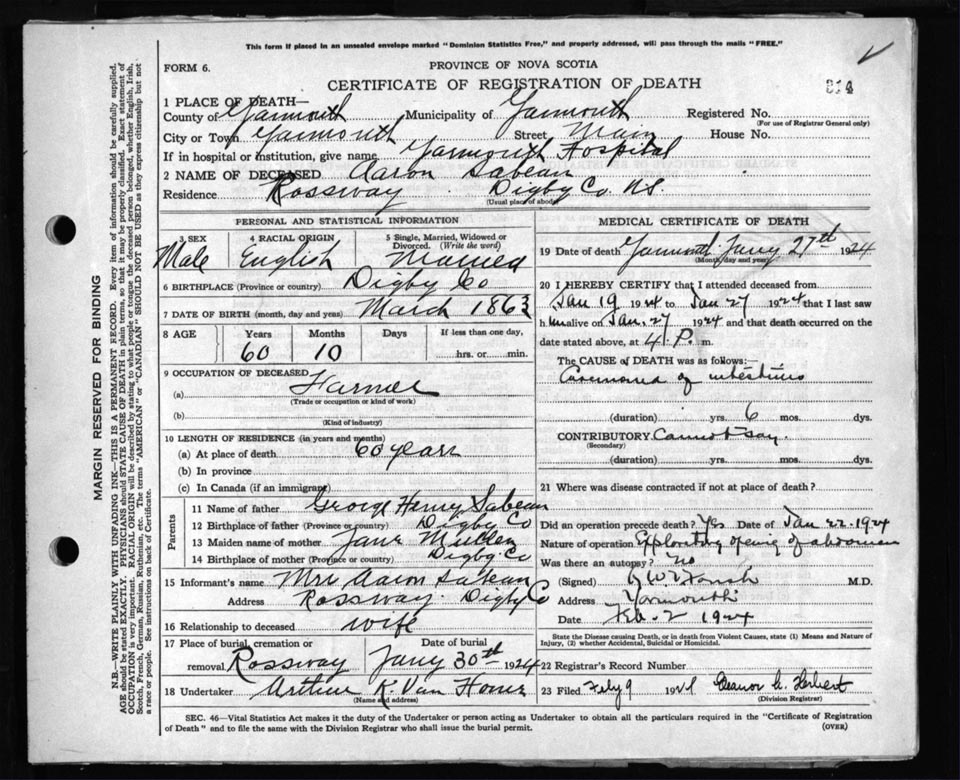 This form if placed in an unsealed envelope marked "Dominion Statistics Free," and properly addressed, will pass through the mails "FREE."
FORM 6.
PROVINCE OF NOVA SCOTIA
CERTIFICATE OF REGISTRATION OF DEATH
314
1 PLACE OF DEATH—
County of Yarmouth Municipality of Yarmouth Registered No.
(For use of Registrar General only)
City or Town Yarmouth Street Main House No.
If in hospital or institution, give name Yarmouth Hospital
2 NAME OF DECEASED Aaron Sabean
Residence Rossway Digby Co. N.S.
(Usual place of abode)
PERSONAL AND STATISTICAL INFORMATION
3 SEX Male
4 RACIAL ORIGIN English
5 Single, Married, Widowed or Divorced. (Write the word) Married
6 BIRTHPLACE (Province or country) Digby Co
7 DATE OF BIRTH (month, day and year) March 1863
8 AGE Years Months Days If less than one day,
60 10 hrs. or min.
9 OCCUPATION OF DECEASED
(a) Farmer
(Trade or occupation or kind of work)
(b)
(Kind of industry)
10 LENGTH OF RESIDENCE (in years and months)
(a) At place of death 60 years
(b) In province
(c) In Canada (if an immigrant)
Parents
11 Name of father George Henry Sabean
12 Birthplace of father (Province or country) Digby Co
13 Maiden name of mother Jane Mullen
14 Birthplace of mother (Province or country) Digby Co
15 Informant's name Mrs Aaron Sabean
Address Rossway Digby Co
16 Relationship to deceased wife
17 Place of burial, cremation or Date of burial
removal Rossway Jany 30th 1924
18 Undertaker Arthur K. Van Horne
(Name and address)
MEDICAL CERTIFICATE OF DEATH
19 Date of death Yarmouth Jany 27th 1924
(Month, day and year)
20 I HEREBY CERTIFY that I attended deceased from
Jan 19 1924 to Jan 27 1924 that I last saw
him alive on Jan. 27 1924 and that death occurred on
date stated above, at 4 P. m.
The CAUSE OF DEATH was as follows:—
Carcinoma of intestines
(duration) yrs. 6 mos. dys.
CONTRIBUTORY Cannot say.
(Secondary)
(duration) yrs. mos. dys.
21 Where was disease contracted if not at place of death?
Did an operation precede death? Yes Date of Jan 22-1924
Nature of operation Exploratory opening of abdomen
Was there an autopsy? No
(Signed) M.D.
Address Yarmouth
Date Feb. 2 1924
State the Disease causing Death, or in death from Violent Causes, state (1) Means and Nature of
Injury, (2) whether Accidental, Suicidal or Homicidal.
22 Registrar's Record Number
23 Filed Feby 9 1924 Eleanor G. Herbert
(Division Registrar)
SEC. 46—Vital Statistics Act makes it the duty of the Undertaker or person acting as Undertaker to obtain all the particulars required in the "Certificate of Registration
of Death" and to file the same with the Division Registrar who shall issue the burial permit.
(OVER)
MARGIN RESERVED FOR BINDING
N.B.—WRITE PLAINLY WITH UNFADING INK—THIS IS A PERMANENT RECORD. Every item of information should be carefully supplied.
AGE should be stated EXACTLY. PHYSICIANS should STATE CAUSE OF DEATH in plain terms, so that it may be properly classified. Exact statement of
OCCUPATION is very important. RACIAL ORIGIN will be described by stating to what people or tongue the deceased person belonged, whether English, Irish,
Scotch, French, German, Russian, Ruthenian, etc. The terms "AMERICAN" or "CANADIAN" SHOULD NOT BE USED as they express citizenship but not
a race or people. See instructions on back of Certificate.